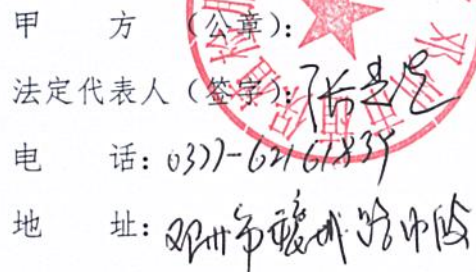 甲 方（公章）:
法定代表人（签字）:
电 话: 0377-62161839
地 址: 邓州市穰城路中段